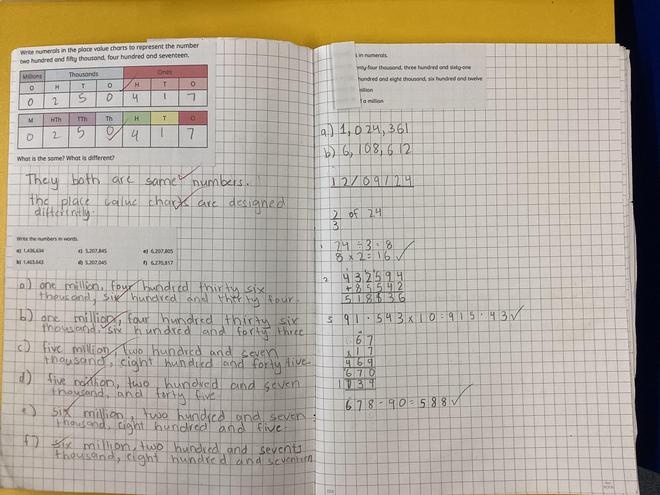 Write numerals in the place value charts to represent the number
two hundred and fifty thousand, four hundred and seventeen.
Millions Thousands Ones
O H T O H T O
0 2 5 0 4 1 7
M HTh TTh Th H T O
0 2 5 0 4 1 7
What is the same? What is different?
They both are same numbers.
the place value charts are designed
differently.
Write the numbers in words.
a) 1,436,634 c) 5,207,845 e) 6,207,805
b) 1,463,643 d) 5,207,045 f) 6,270,817
a) one million, four hundred thirty six
thousand, six hundred and thirty four.
b) one million, four hundred thirty six
thousand, six hundred and forty three
c) five million, two hundred and seven
thousand, eight hundred and forty five
d) five million, two hundred and seven
thousand, and forty five.
e) six million, two hundred and seven
thousand, eight hundred and five.
f) six million, two hundred and seventy
thousand, eight hundred and seventeen
in numerals.
four thousand, three hundred and sixty-one
hundred and eight thousand, six hundred and twelve
million
a million
a) 1,024,361
b) 6,108,612
12/09/24
2/3 of 24
1. 24÷3=8
8×2=16
2. 432594
+85542
518136
3. 91.543×10=915.43
67
×17
469
670
1139
678-90=588